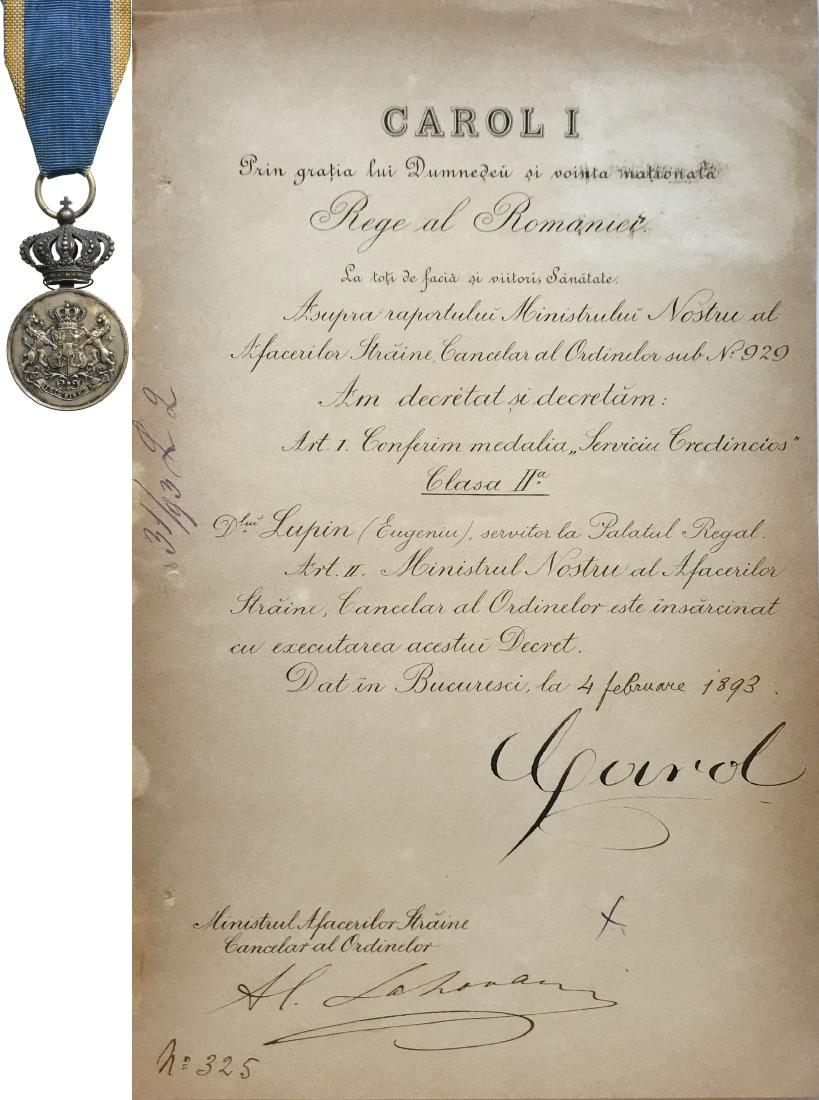 CAROL I
Prin grația lui Dumneḑeŭ și voința națională
Rege al Romaniei.
La toți de faciă și viitori, Sănătate.
Asupra raportuluĭ Ministruluĭ Nostru al
Afacerilor Străine, Cancelar al Ordinelor sub No. 929
Am decretat și decretăm:
Art. 1. Conferim medalia „Serviciu Credincios"
Clasa IIa
Dluĭ Lupin (Eugeniu), servitor la Palatul Regal.
Art. II. Ministrul Nostru al Afacerilor
Străine, Cancelar al Ordinelor este însărcinat
cu executarea acestuĭ Decret.
Dat în Bucuresci, la 4 februare 1893.
Carol
Ministrul Afacerilor Străine
Cancelar al Ordinelor
Al. Lahovari
No 325